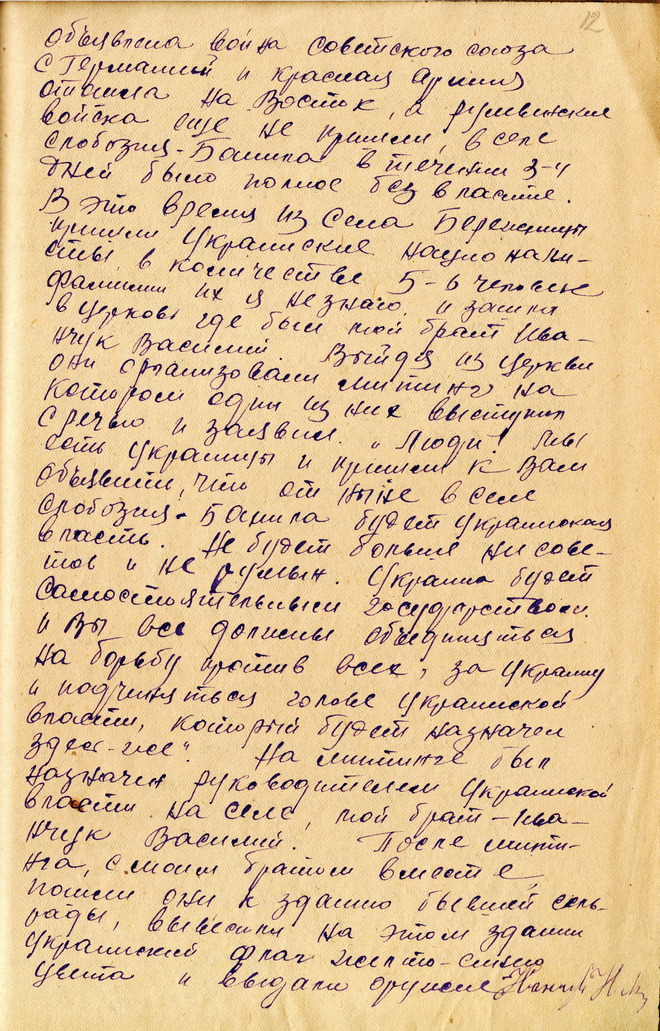 12
объявлена война советского союза
с Германией и красная армия
отошла на восток, а румынские
войска еще не пришли, в селе
Слобозия-Банила в течении 3-4
дней было полное без властие.
В это время из села Бережницы
пришли Украинские национали-
сты в количестве 5-6 человек
фамилии их я не знаю, и зашли
в церковь где был мой брат Ива-
нчук Василий. Выйдя из церкви
они организовали митинг на
котором один из них выступил
с речью и заявил. „Люди! Мы
есть украинцы и пришли к Вам
объявить, что от ныне в селе
Слобозия-Банила будет украинская
власть. Не будет больше ни сове-
тов и не румын. Украина будет
самостоятельным государством.
и Вы все должны объединиться
на борьбу против всех, за Украину
и подчиняться голове Украинской
власти, который будет назначен
здесь-же". На митинге был
назначен руководителем украинской
власти на селе, мой брат-Ива-
нчук Василий. После митин-
га, с моим братом вместе
пошли они к зданию бывшей сель-
рады, вывесили на этом здании
украинский флаг желто-синего
цвета и выдали оружие